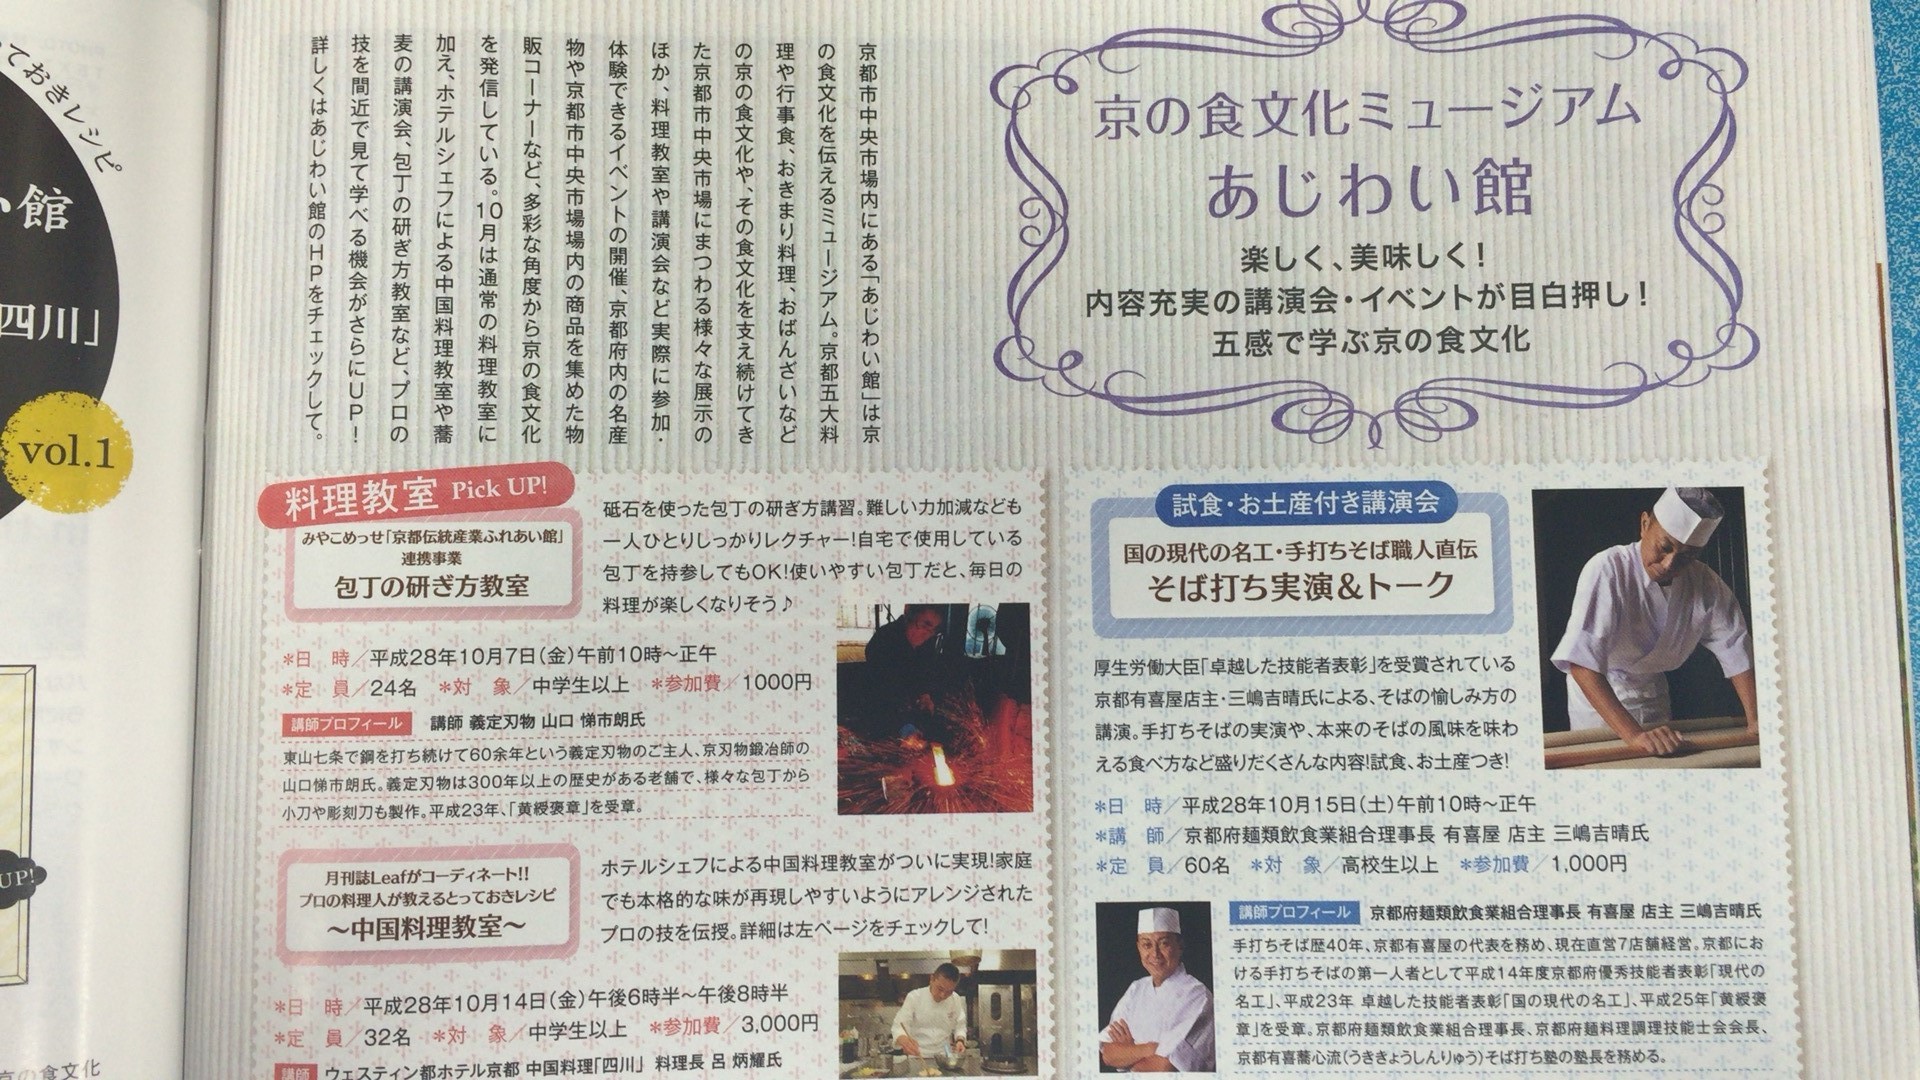 ておきレシピ
館
四川」
vol.1
UP!
京の食文化ミュージアム
あじわい館
楽しく、美味しく!
内容充実の講演会・イベントが目白押し!
五感で学ぶ京の食文化
京都市中央市場内にある「あじわい館」は京
の食文化を伝えるミュージアム。京都五大料
理や行事食、おきまり料理、おばんざいなど
の京の食文化や、その食文化を支え続けてき
た京都市中央市場にまつわる様々な展示の
ほか、料理教室や講演会など実際に参加・
体験できるイベントの開催、京都府内の名産
物や京都市中央市場場内の商品を集めた物
販コーナーなど、多彩な角度から京の食文化
を発信している。10月は通常の料理教室に
加え、ホテルシェフによる中国料理教室や蕎
麦の講演会、包丁の研ぎ方教室など、プロの
技を間近で見て学べる機会がさらにUP!
詳しくはあじわい館のHPをチェックして。
料理教室 Pick UP!
みやこめっせ「京都伝統産業ふれあい館」
連携事業
包丁の研ぎ方教室
砥石を使った包丁の研ぎ方講習。難しい力加減なども
一人ひとりしっかりレクチャー!自宅で使用している
包丁を持参してもOK!使いやすい包丁だと、毎日の
料理が楽しくなりそう♪
*日 時/平成28年10月7日(金)午前10時〜正午
*定 員/24名 *対 象/中学生以上 *参加費/1000円
講師プロフィール 講師 義定刃物 山口 悌市朗氏
東山七条で鋼を打ち続けて60余年という義定刃物のご主人、京刃物鍛冶師の
山口悌市朗氏。義定刃物は300年以上の歴史がある老舗で、様々な包丁から
小刀や彫刻刀も製作。平成23年、「黄綬褒章」を受章。
月刊誌Leafがコーディネート!!
プロの料理人が教えるとっておきレシピ
〜中国料理教室〜
ホテルシェフによる中国料理教室がついに実現!家庭
でも本格的な味が再現しやすいようにアレンジされた
プロの技を伝授。詳細は左ページをチェックして!
*日 時/平成28年10月14日(金)午後6時半〜午後8時半
*定 員/32名 *対 象/中学生以上 *参加費/3,000円
講師 ウェスティン都ホテル京都 中国料理「四川」 料理長 呂 炳耀氏
試食・お土産付き講演会
国の現代の名工・手打ちそば職人直伝
そば打ち実演&トーク
厚生労働大臣「卓越した技能者表彰」を受賞されている
京都有喜屋店主・三嶋吉晴氏による、そばの愉しみ方の
講演。手打ちそばの実演や、本来のそばの風味を味わ
える食べ方など盛りだくさんな内容!試食、お土産つき!
*日 時/平成28年10月15日(土)午前10時〜正午
*講 師/京都府麺類飲食業組合理事長 有喜屋 店主 三嶋吉晴氏
*定 員/60名 *対 象/高校生以上 *参加費/1,000円
講師プロフィール 京都府麺類飲食業組合理事長 有喜屋 店主 三嶋吉晴氏
手打ちそば歴40年、京都有喜屋の代表を務め、現在直営7店舗経営。京都にお
ける手打ちそばの第一人者として平成14年度京都府優秀技能者表彰「現代の
名工」、平成23年 卓越した技能者表彰「国の現代の名工」、平成25年「黄綬褒
章」を受章。京都府麺類飲食業組合理事長、京都府麺料理調理技能士会会長、
京都有喜蕎心流(うききょうしんりゅう)そば打ち塾の塾長を務める。
の食文化